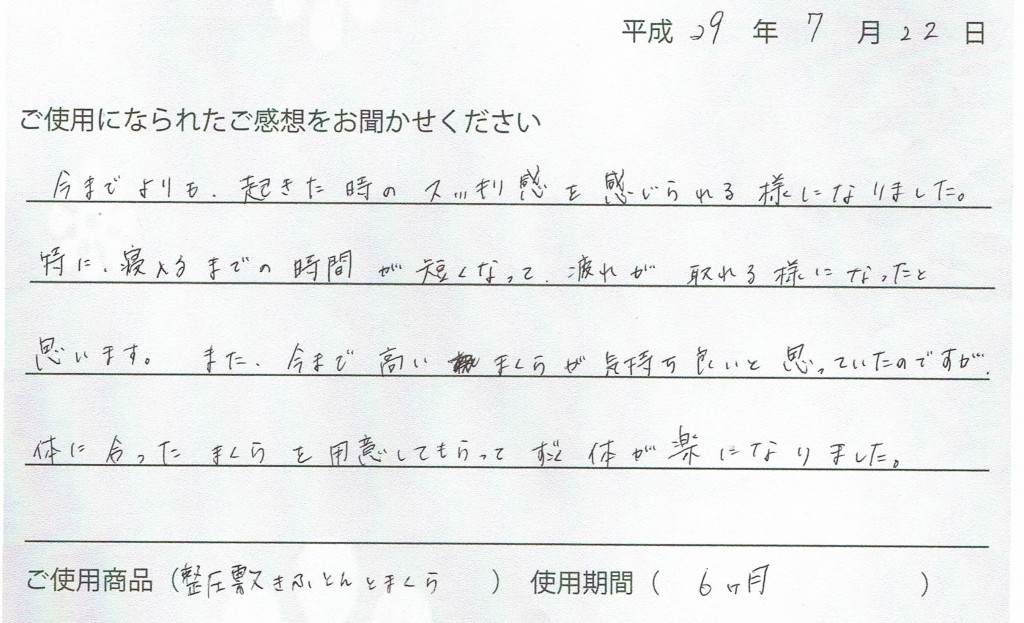 平成 29 年 7 月 22 日
ご使用になられたご感想をお聞かせください
今までよりも、起きた時のスッキリ感を感じられる様になりました。
特に、寝入るまでの時間が短くなって、疲れが取れる様になったと
思います。また、今まで高いまくらが気持ち良いと思っていたのですが、
体に合ったまくらを用意してもらってずごく体が楽になりました。
ご使用商品（整圧敷きふとんとまくら） 使用期間（ 6ヶ月 ）